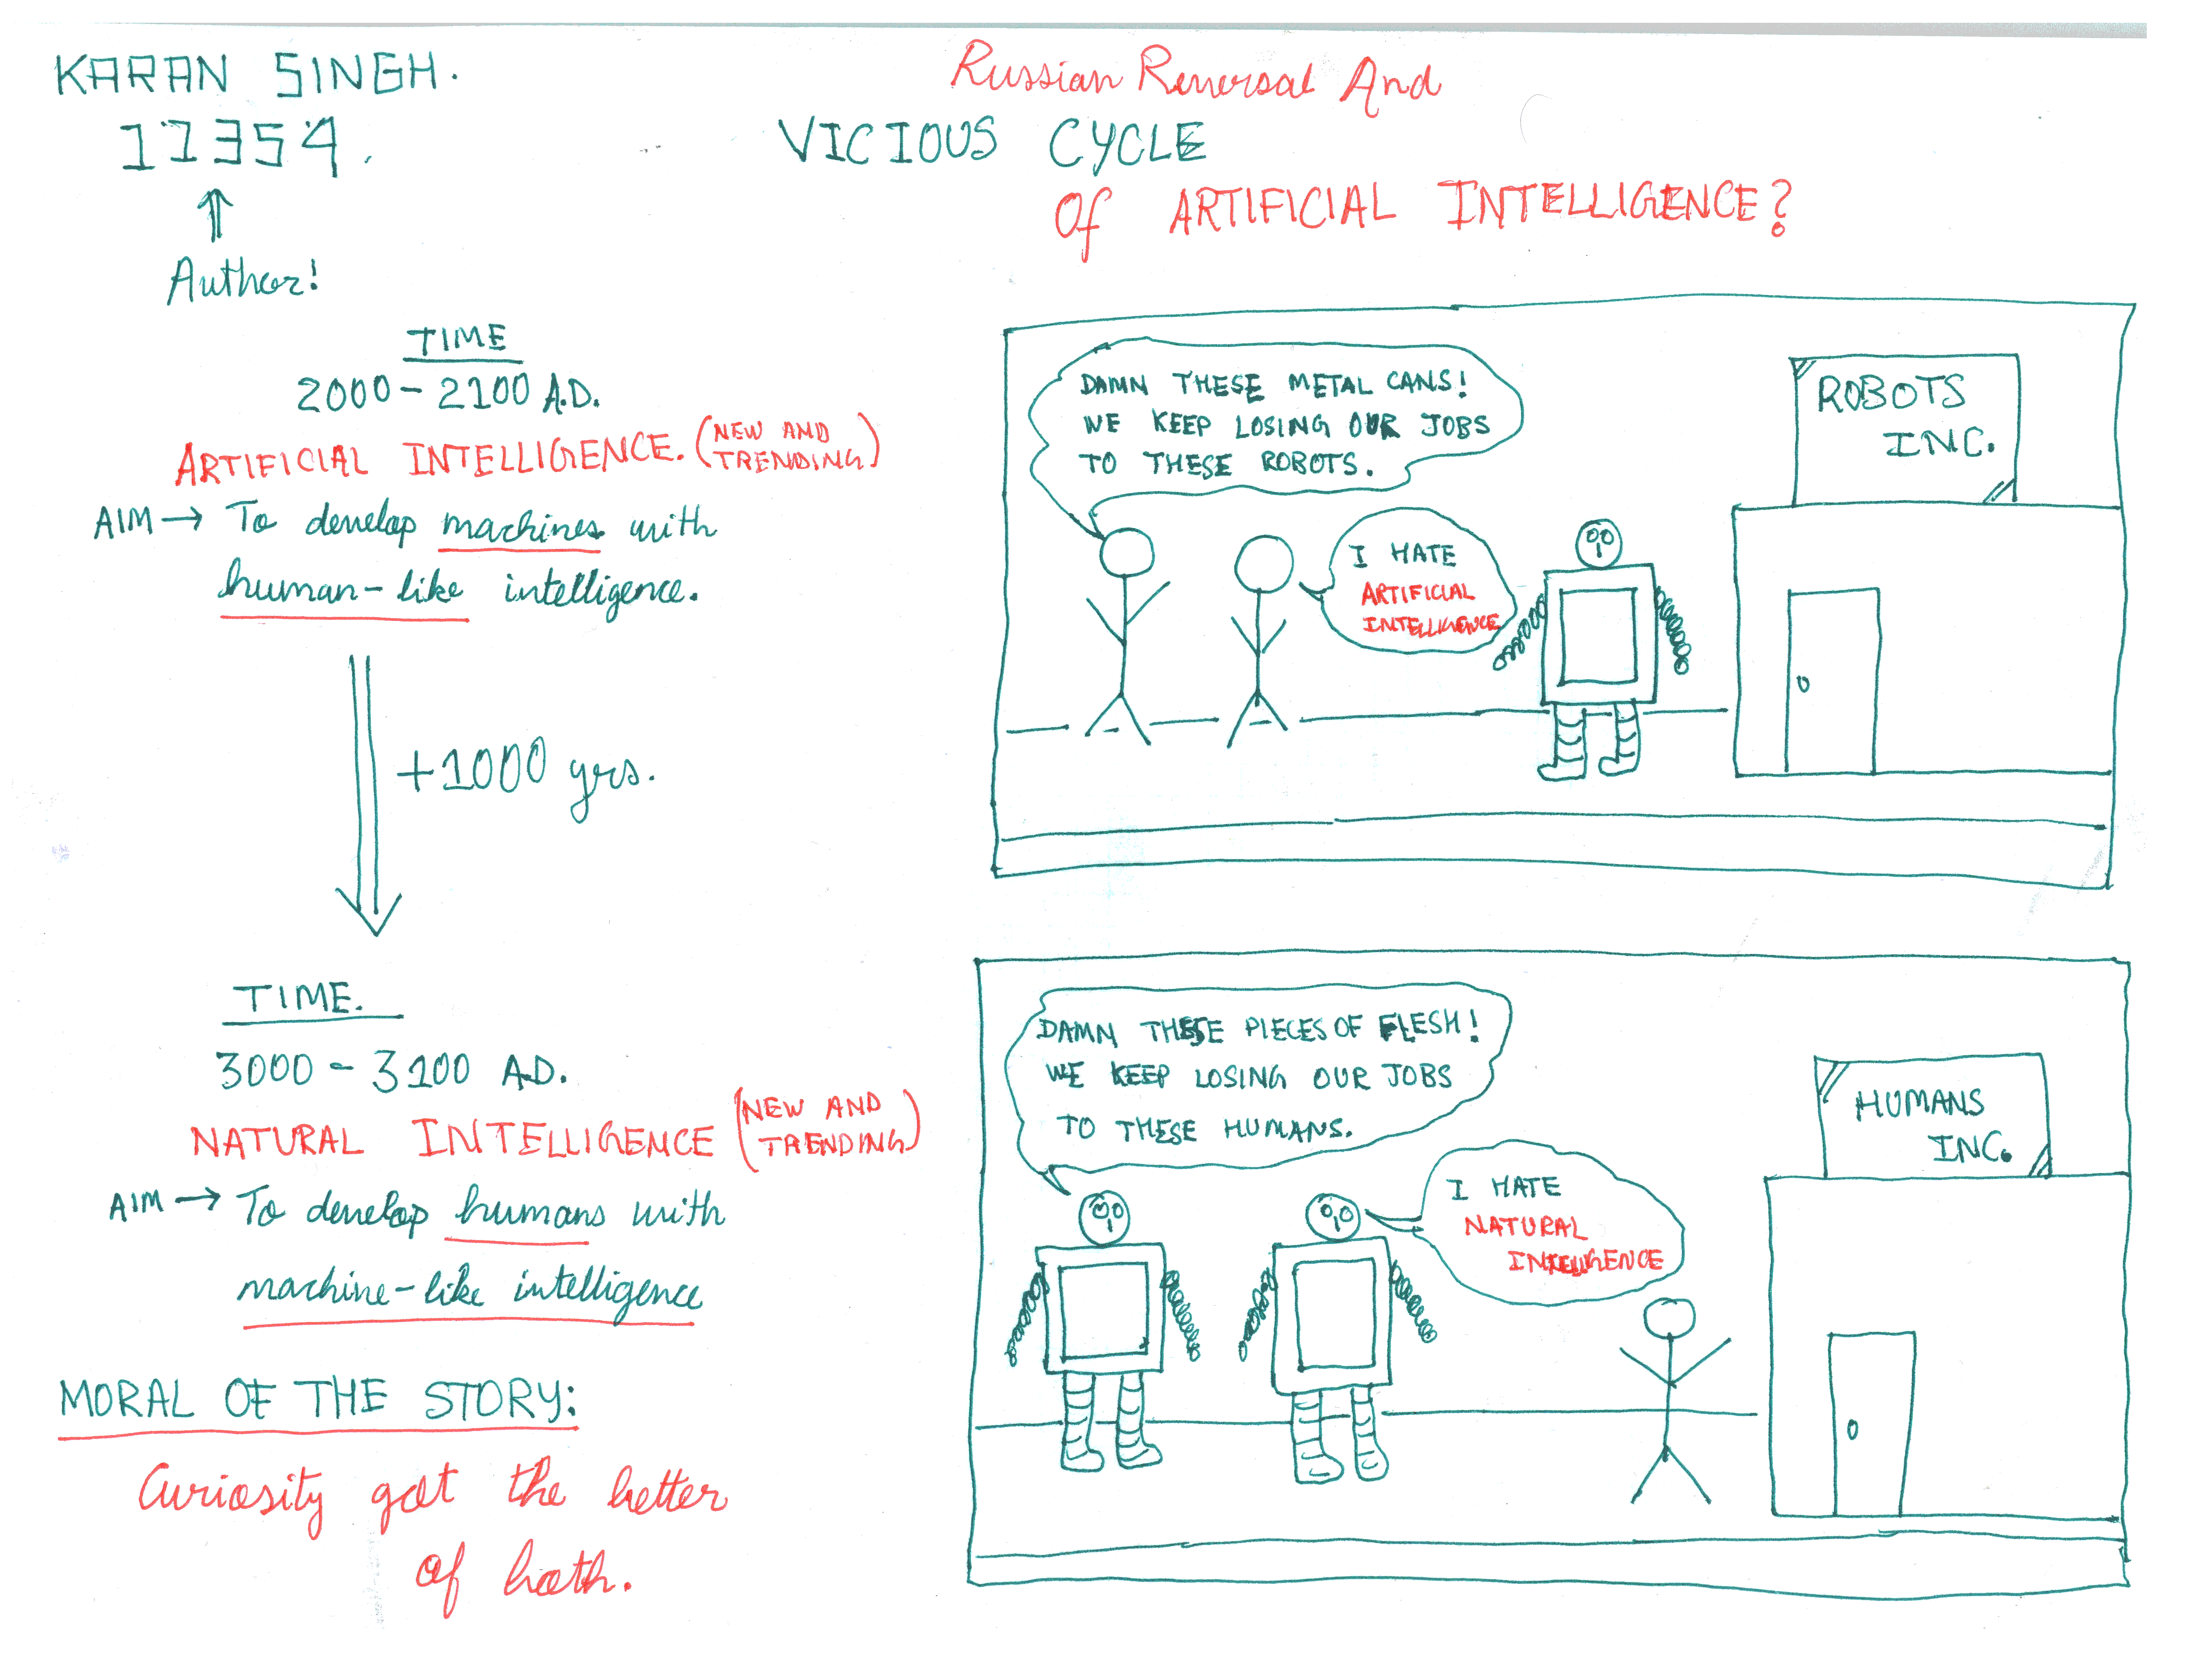 KARAN SINGH.
11354.
Author!
Russian Reversal And
VICIOUS CYCLE
Of ARTIFICIAL INTELLIGENCE?
TIME
2000 - 2100 A.D.
ARTIFICIAL INTELLIGENCE. (NEW AND
TRENDING)
AIM → To develop machines with
human-like intelligence.
+1000 yrs.
DAMN THESE METAL CANS!
WE KEEP LOSING OUR JOBS
TO THESE ROBOTS.
I HATE
ARTIFICIAL
INTELLIGENCE
ROBOTS
INC.
TIME.
3000 - 3100 A.D.
NATURAL INTELLIGENCE (NEW AND
TRENDING)
AIM → To develop humans with
machine-like intelligence
DAMN THESE PIECES OF FLESH!
WE KEEP LOSING OUR JOBS
TO THESE HUMANS.
I HATE
NATURAL
INTELLIGENCE
HUMANS
INC.
MORAL OF THE STORY:
Curiosity got the better
of both.